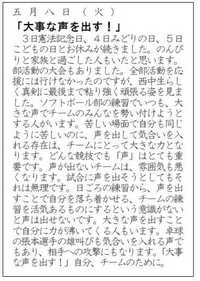 五月八日（火）
「大事な声を出す！」
３日憲法記念日、４日みどりの日、５日
こどもの日とお休みが続きました。のんび
りと家族と過ごした人もいたと思います。
部活動の大会もありました。全部活動を応
援には行けなかったのですが、西中生らし
く真剣に最後まで粘り強く頑張る姿を見ま
した。ソフトボール部の練習でいつも、大
きな声でチームのみんなを勢い付けようと
する人がいます。苦しい場面で自分も同じ
ように苦しいのに、声を出して気合いを入
れる存在は、チームにとって大きな力とな
ります。どんな競技でも「声」はとても重
要です。声が出ないチームは、雰囲気も悪
くなります。試合に声を出そうとしてもそ
れは無理です。日ごろの練習から、声を出
すことで自分を落ち着かせる、チームの練
習を活気あるものにするという意識がない
と声は出せないです。大きな声を出すこと
で自分に力が沸いてくる人もいます。卓球
の張本選手の雄叫びも気合いを入れる声で
もあり、相手への攻撃にもなります。「大事
な声を出す！」自分、チームのために。